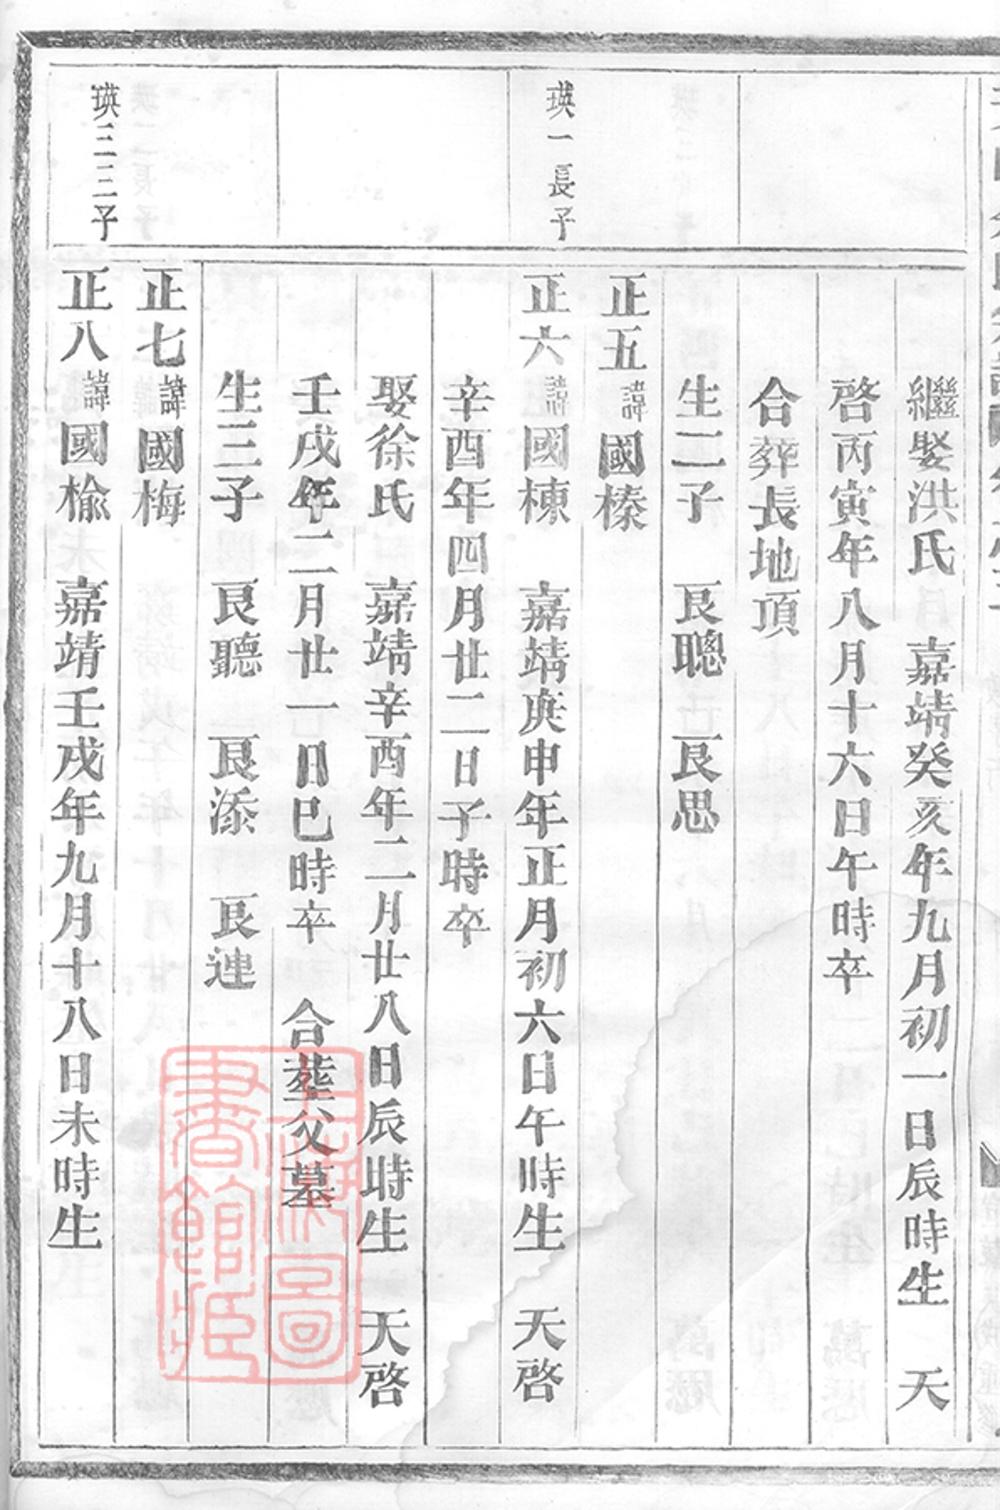 繼娶洪氏　嘉靖癸亥年九月初一日辰時生　天
啓丙寅年八月十六日午時卒
合葬長地頂
生二子　艮聰　艮思
正五諱國榛
瑛一長子
正六諱國棟　嘉靖庚申年正月初六日午時生　天啓
辛酉年四月廿二日子時卒
娶徐氏　嘉靖辛酉年二月廿八日辰時生　天啓
壬戌年二月廿一日巳時卒　合塟父墓
生三子　艮聽　艮添　艮連
正七諱國梅
瑛三三子
正八諱國榆　嘉靖壬戌年九月十八日未時生
上海圖
書館藏